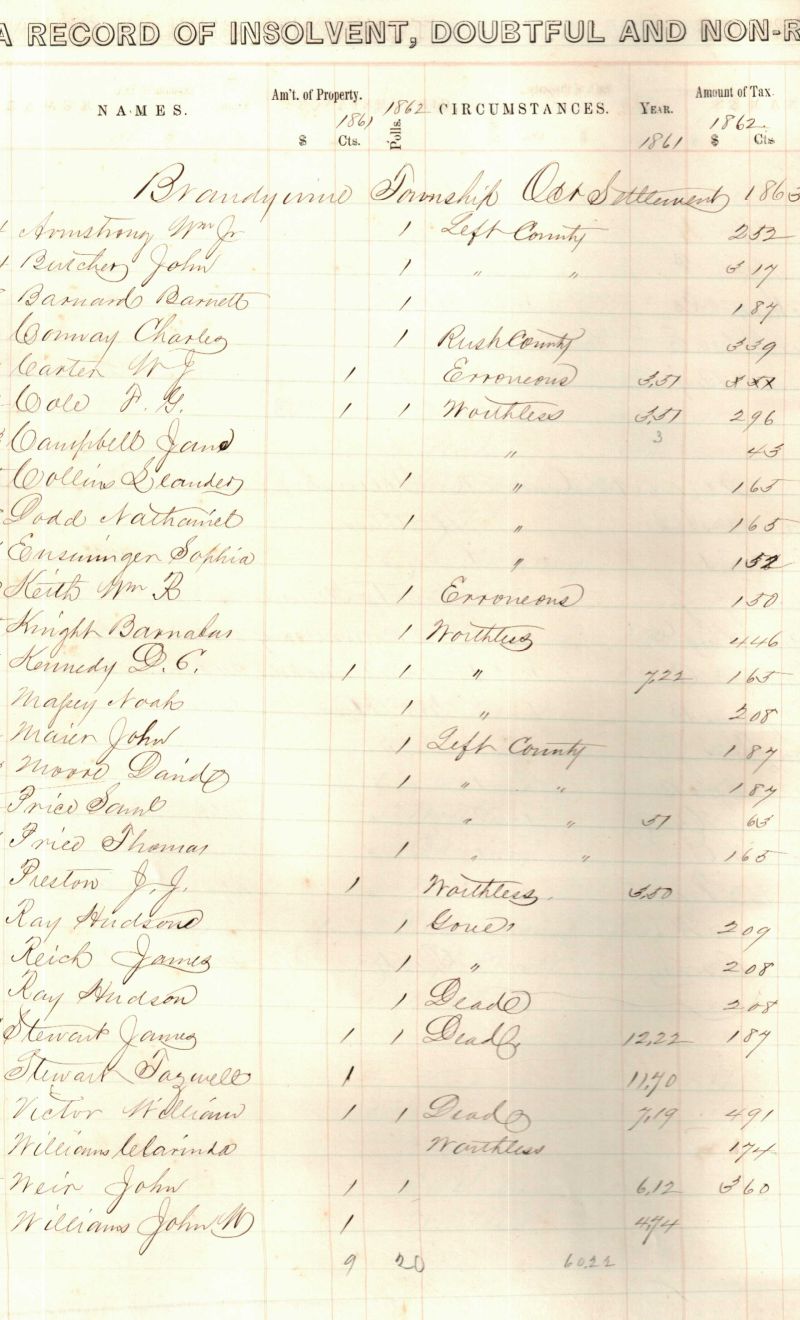 A RECORD OF INSOLVENT, DOUBTFUL AND NON-R
NAMES. Am't. of Property. 1861 $ Cts. 1862 Polls. CIRCUMSTANCES. YEAR. 1861 Amount of Tax. 1862. $ Cts
Brandywine Township Oct Settlement 1863
Armstrong Wm Jr 1 Left County 2 52
Butcher John 1 " " 3 17
Barnard Barnett 1 1 87
Conway Charles 1 Rush County 3 39
Carter W J 1 Erroneous 3,51
Cole F. G. 1 1 Worthless 3,51 2 96
Campbell Jane " 3 43
Collins Leander 1 " 1 65
Dodd Nathaniel 1 " 1 65
Ensminger Sophia " 1 52
Keith Wm R 1 Erroneous 1 50
Knight Barnabas 1 Worthless 4 46
Kennedy D. C. 1 1 " 7,22 1 65
Noah 1 " 2 08
Maier John 1 Left County 1 87
Moore David 1 " " 1 87
Price Saml " " 51 63
Price Thomas 1 " " 1 65
Preston J. J. 1 Worthless. 3,50
Ray Hudson 1 Gone 2 09
Reich James 1 " 2 08
Ray Hudson 1 Dead 2 08
Stewart James 1 1 Dead 12,22 1 87
Stewart Tazwell 1 11,70
Victor William 1 1 Dead 7,19 4 91
Williams Clarinda Worthless 1 74
Weir John 1 1 6,12 3 60
Williams John W 1 4,74
9 20 60,22